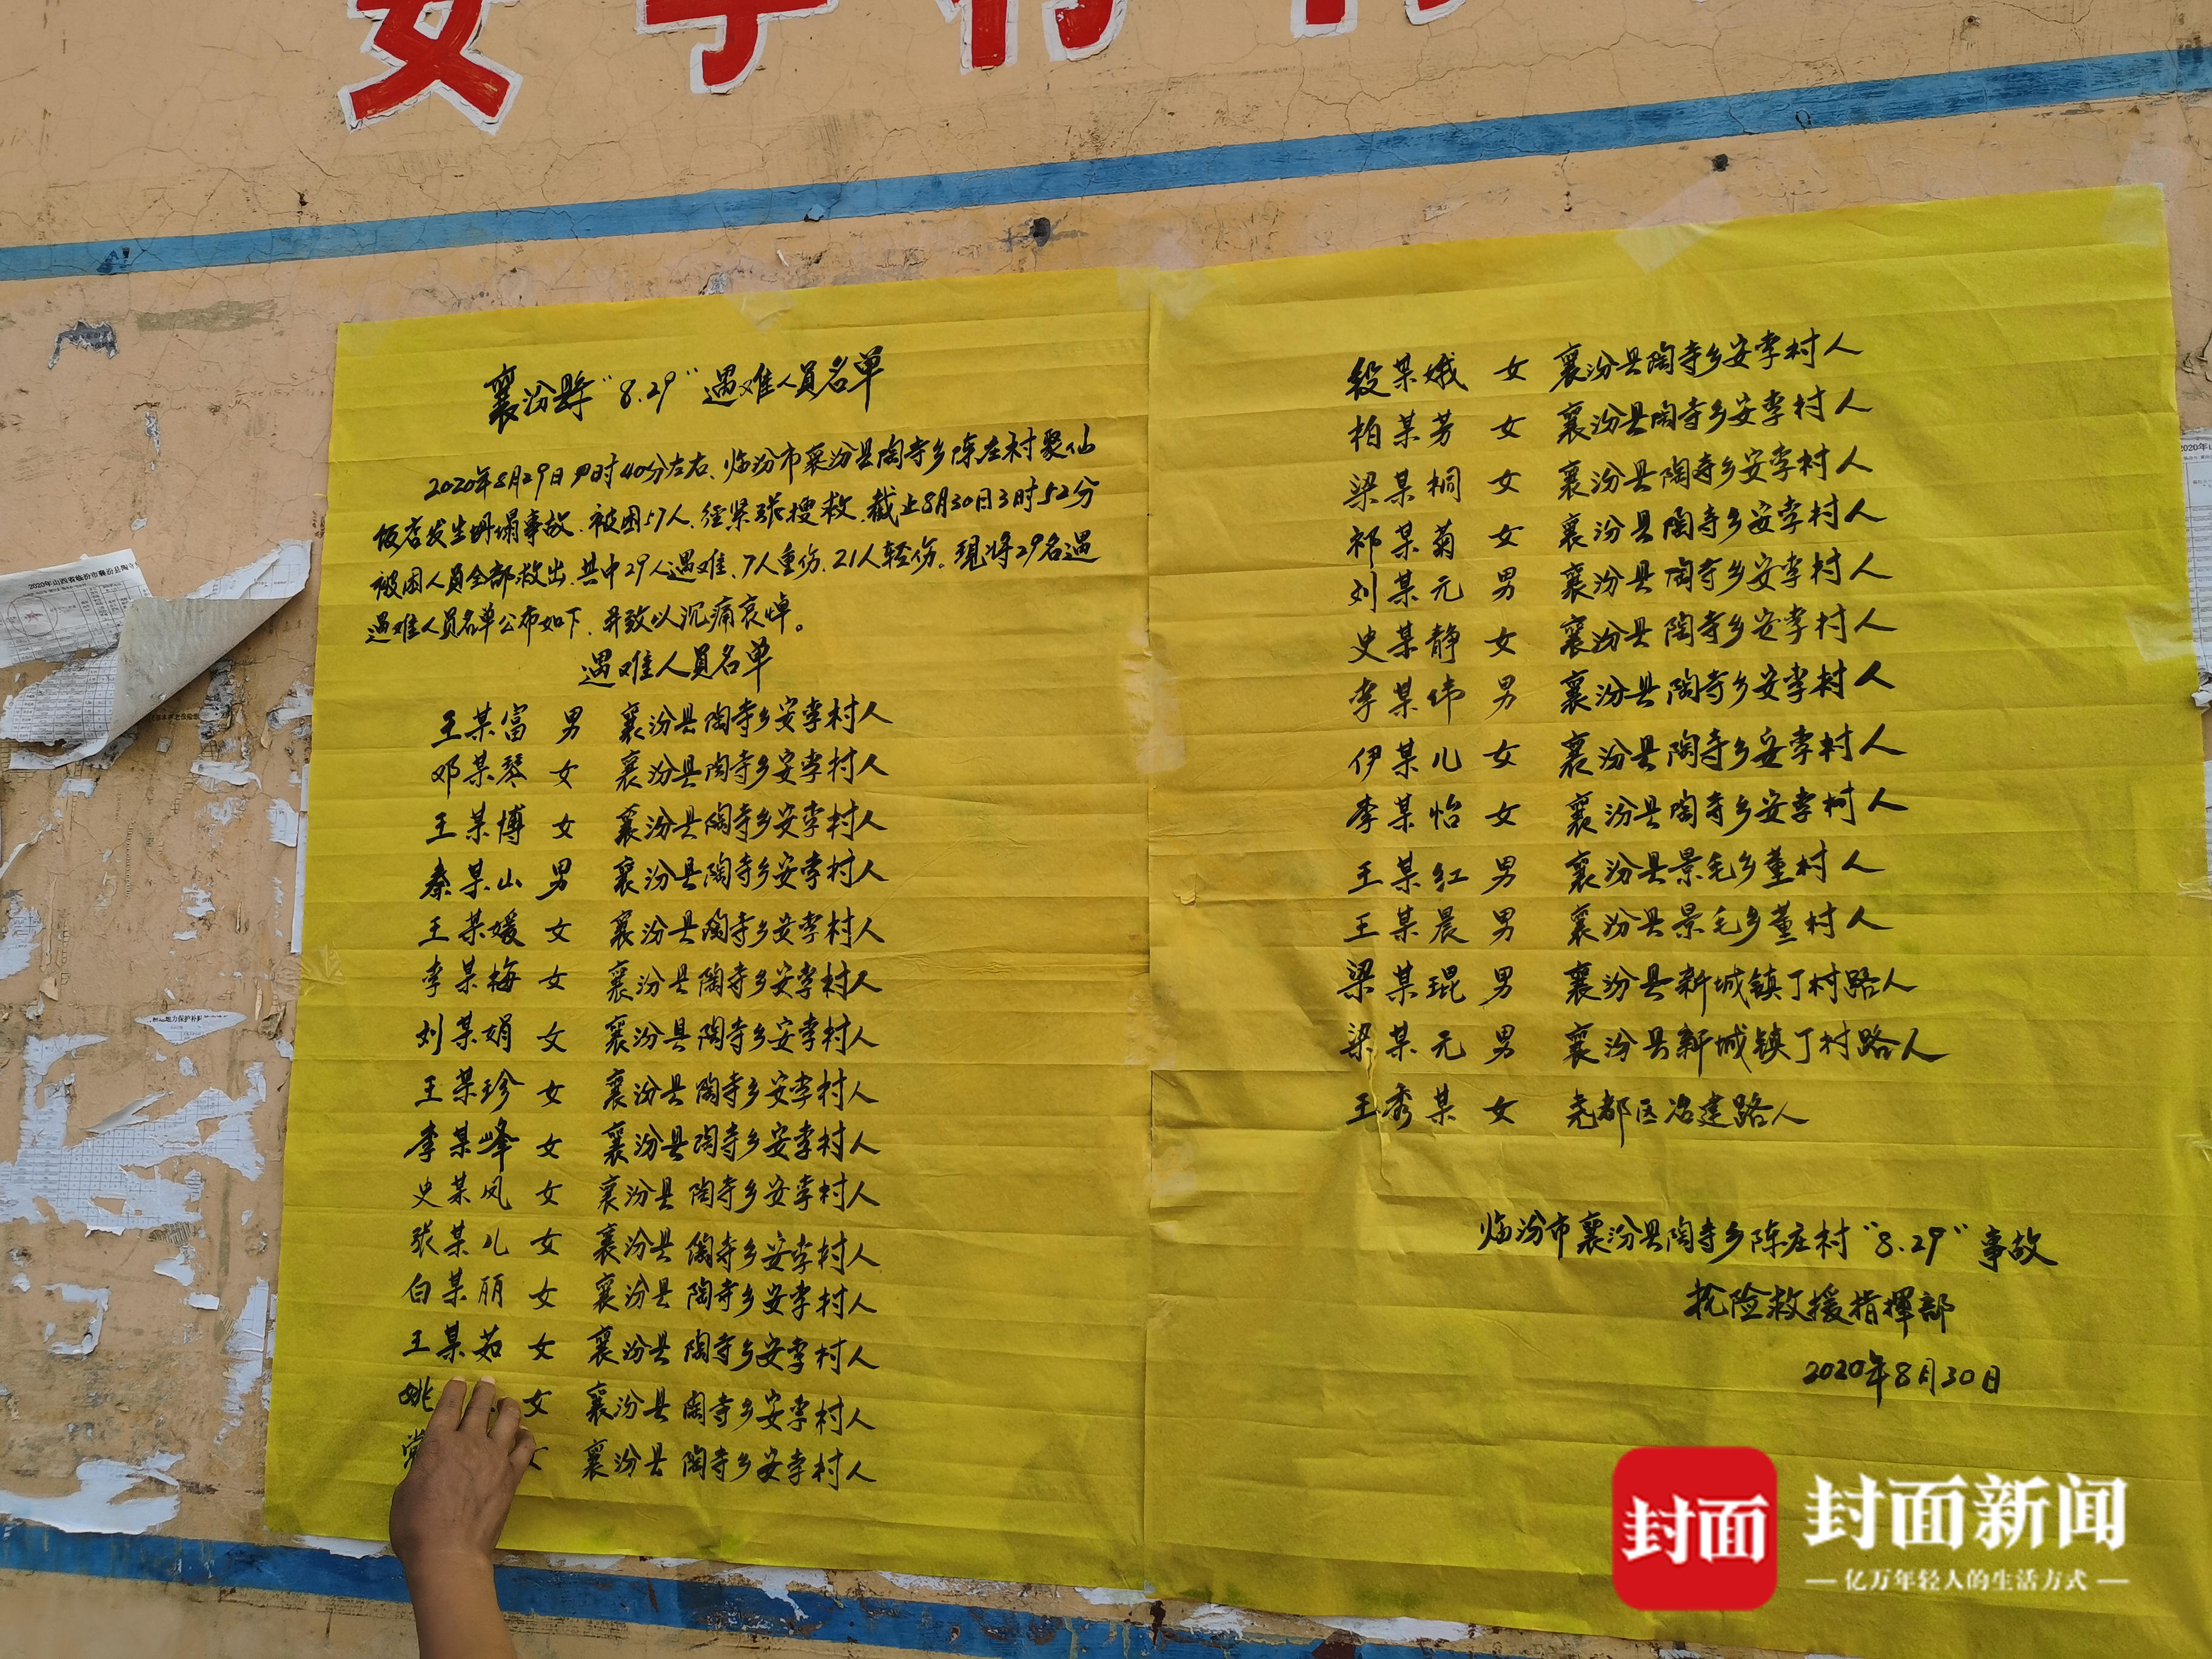 安李村
襄汾县“8.29”遇难人员名单
2020年8月29日9时40分左右、临汾市襄汾县陶寺乡陈庄村聚仙
饭店发生坍塌事故、被困57人、经紧张搜救、截止8月30日3时52分
被困人员全部救出、其中29人遇难、7人重伤、21人轻伤。现将29名遇
遇难人员名单公布如下、并致以沉痛哀悼。
遇难人员名单
王某富 男 襄汾县陶寺乡安李村人
邓某琴 女 襄汾县陶寺乡安李村人
王某博 女 襄汾县陶寺乡安李村人
秦某山 男 襄汾县陶寺乡安李村人
王某媛 女 襄汾县陶寺乡安李村人
李某梅 女 襄汾县陶寺乡安李村人
刘某娟 女 襄汾县陶寺乡安李村人
王某珍 女 襄汾县陶寺乡安李村人
李某峰 女 襄汾县陶寺乡安李村人
史某凤 女 襄汾县陶寺乡安李村人
张某儿 女 襄汾县陶寺乡安李村人
白某丽 女 襄汾县陶寺乡安李村人
王某茹 女 襄汾县陶寺乡安李村人
姚 女 襄汾县陶寺乡安李村人
襄汾县陶寺乡安李村人
段某娥 女 襄汾县陶寺乡安李村人
柏某芳 女 襄汾县陶寺乡安李村人
梁某桐 女 襄汾县陶寺乡安李村人
祁某菊 女 襄汾县陶寺乡安李村人
刘某元 男 襄汾县陶寺乡安李村人
史某静 女 襄汾县陶寺乡安李村人
李某伟 男 襄汾县陶寺乡安李村人
伊某儿 女 襄汾县陶寺乡安李村人
李某怡 女 襄汾县陶寺乡安李村人
王某红 男 襄汾县景毛乡董村人
王某晨 男 襄汾县景毛乡董村人
梁某琨 男 襄汾县新城镇丁村路人
梁某元 男 襄汾县新城镇丁村路人
王秀某 女 尧都区冶建路人
临汾市襄汾县陶寺乡陈庄村“8.29”事故
抢险救援指挥部
2020年8月30日
封面
封面新闻
亿万年轻人的生活方式